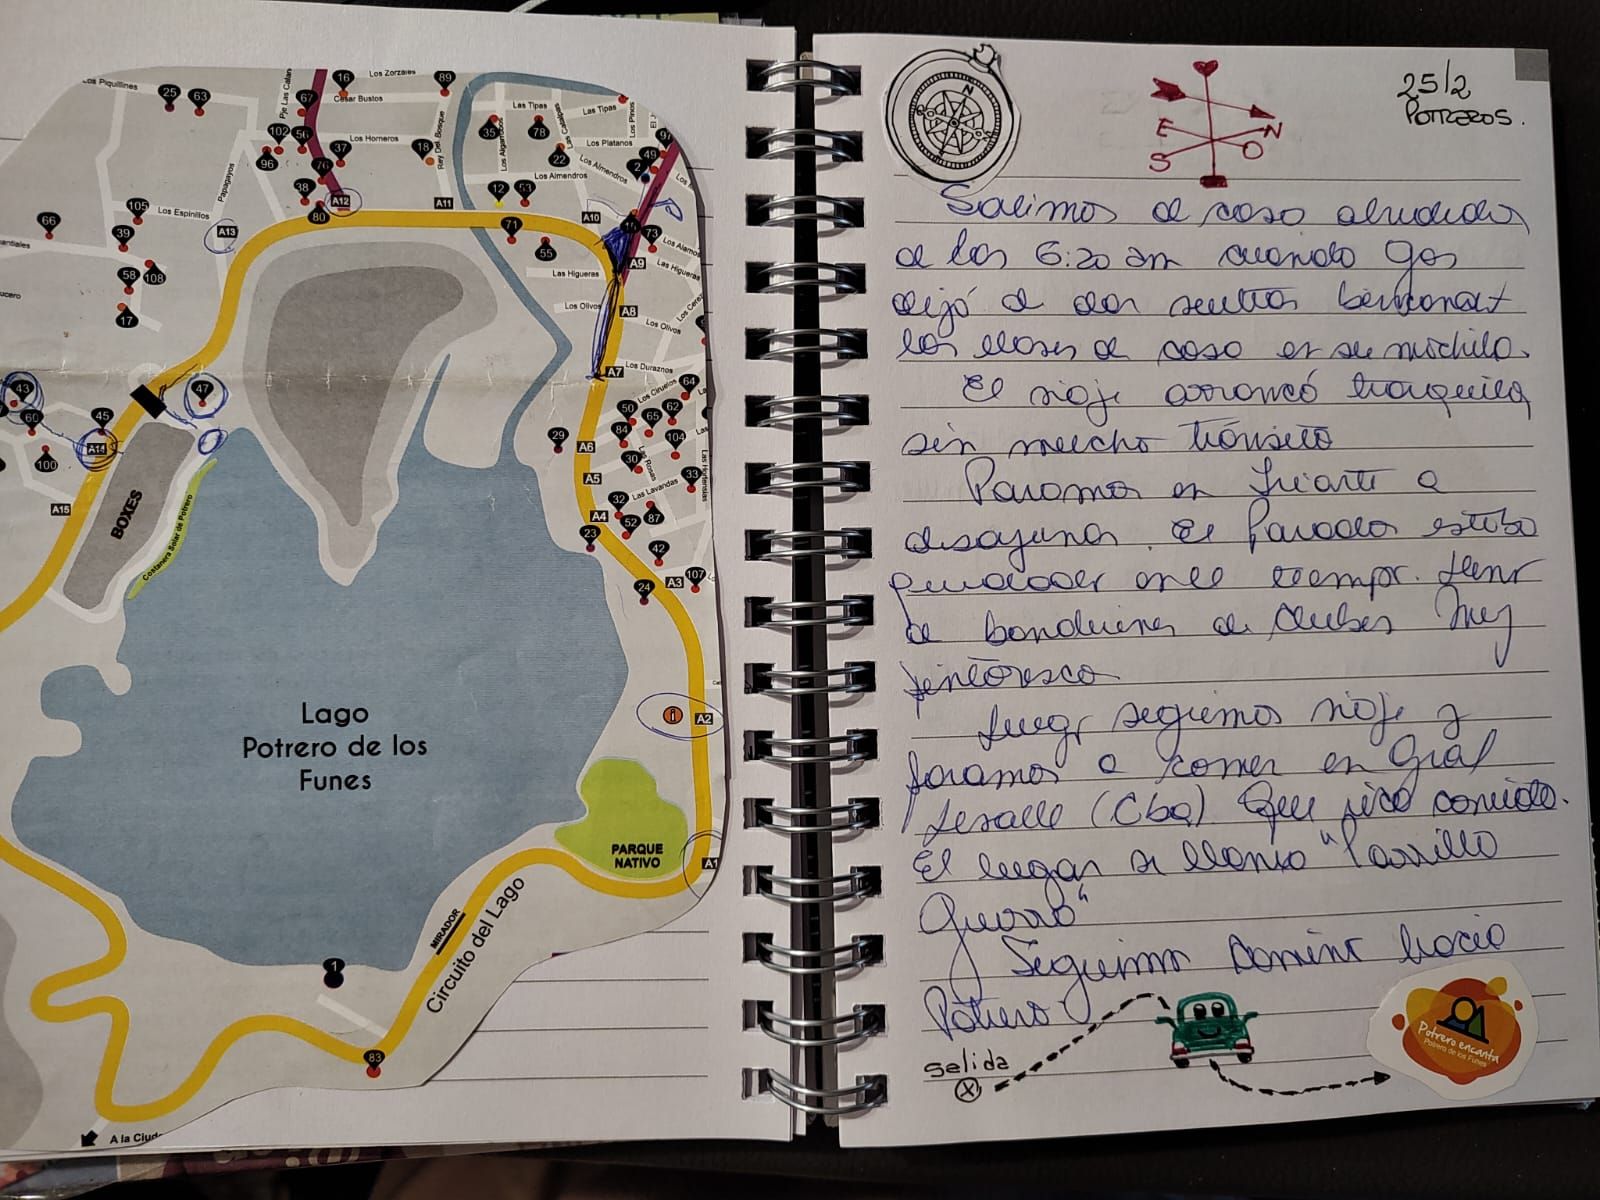 Los Piquillines
25
63
Pje Las Calan
16
Los Zorzales
89
67
Cesar Bustos
102
56
Los Horneros
37
96
76
18
Rey Del Bosque
38
A12
80
A11
Papagayos
105
Los Espinillos
A13
66
39
58
108
17
Las Tipas
Las Tipas
35
78
Los Algarrobos
22
Los Platanos
Los Pinos
97
49
2
Los Almendros
Los Almendros
12
53
A10
71
55
73
Los Alamos
A9
Las Higueras
Las Higueras
Los Olivos
A8
Los Olivos
A7
Los Duraznos
43
47
60
45
A14
100
A15
BOXES
Costanera Solar de Potrero
Los Ciruelos
64
50
65
62
84
104
29
A6
30
Las Rosas
33
A5
Las Lavandas
Las Hortensias
32
87
A4
52
23
42
A3
107
24
i
A2
Lago
Potrero de los
Funes
PARQUE
NATIVO
A1
MIRADOR
Circuito del Lago
1
83
A la Ciud
N
E
N
S
O
25/2
POTREROS.
Salimos de casa alrededor
de las 6:20 am cuando Gas
dejó de dar vueltas
las llaves de casa en su mochila.
El viaje arrancó tranquilo,
sin mucho tránsito
Paramos en Iriarte a
desayunar. El Parador estaba
lleno
de banderines de clubes Muy
pintoresco
Luego seguimos viaje y
paramos a comer en Gral
Levalle (Cba) Que rica comida.
El lugar se llama "Parrilla
Seguimos camino hacia
Potrero
salida
Potrero encanta
Potrero de los Funes